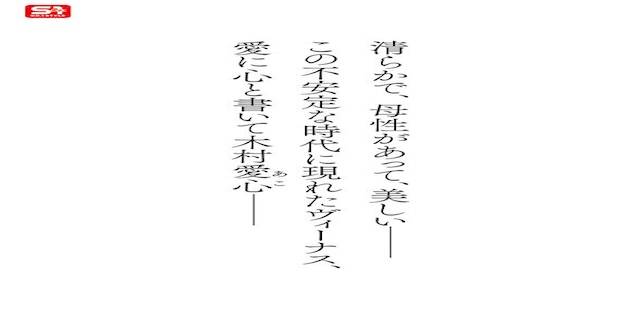 S1
清らかで、母性があって、美しい──
この不安定な時代に現れたヴィーナス、
愛に心と書いて木村愛心──
あこ